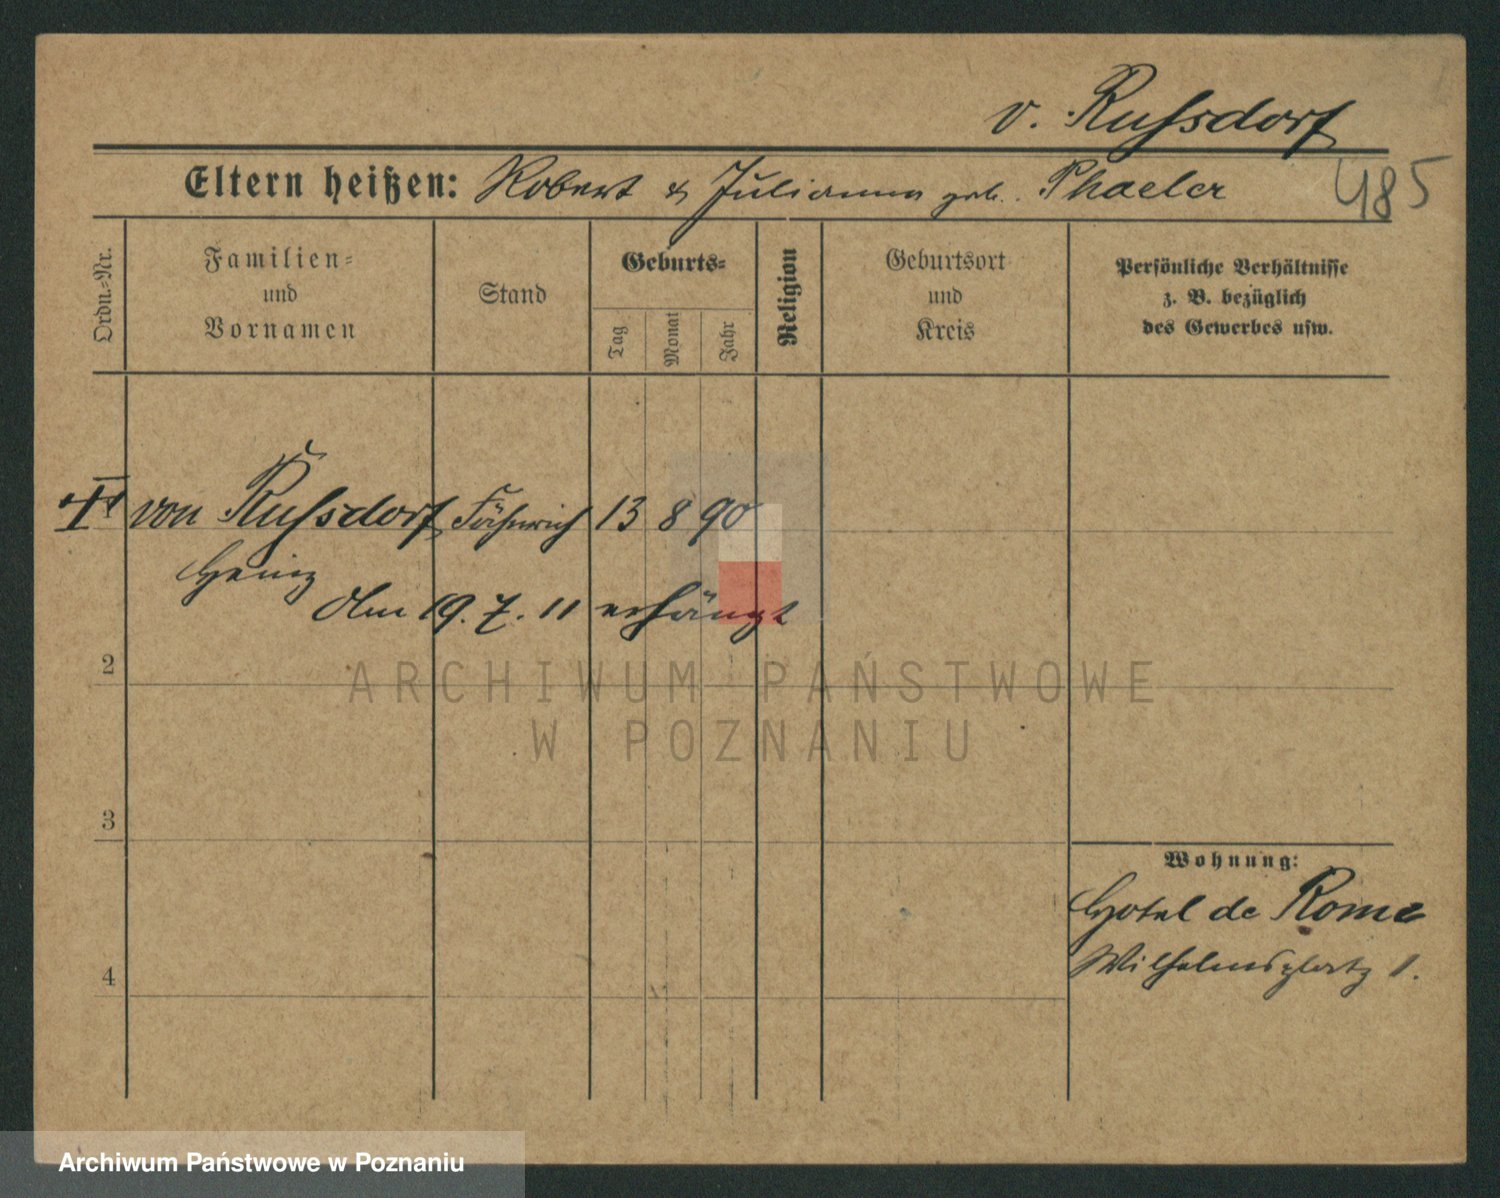 v. Rußdorf
Eltern heißen: Robert & Julianna geb.
485
Ordn.=Nr.
Familien=
und
Vornamen
Stand
Geburts=
Tag
Monat
Jahr
Religion
Geburtsort
und
Kreis
Persönliche Verhältnisse
z. B. bezüglich
des Gewerbes usw.
von Rußdorf Fähnrich 13 8 90
Heinz
Am 19. 7. 11 erhängt
2
3
4
Wohnung:
Hotel de Rome
Wilhelmsplatz 1.
ARCHIWUM PAŃSTWOWE
W POZNANIU
Archiwum Państwowe w Poznaniu